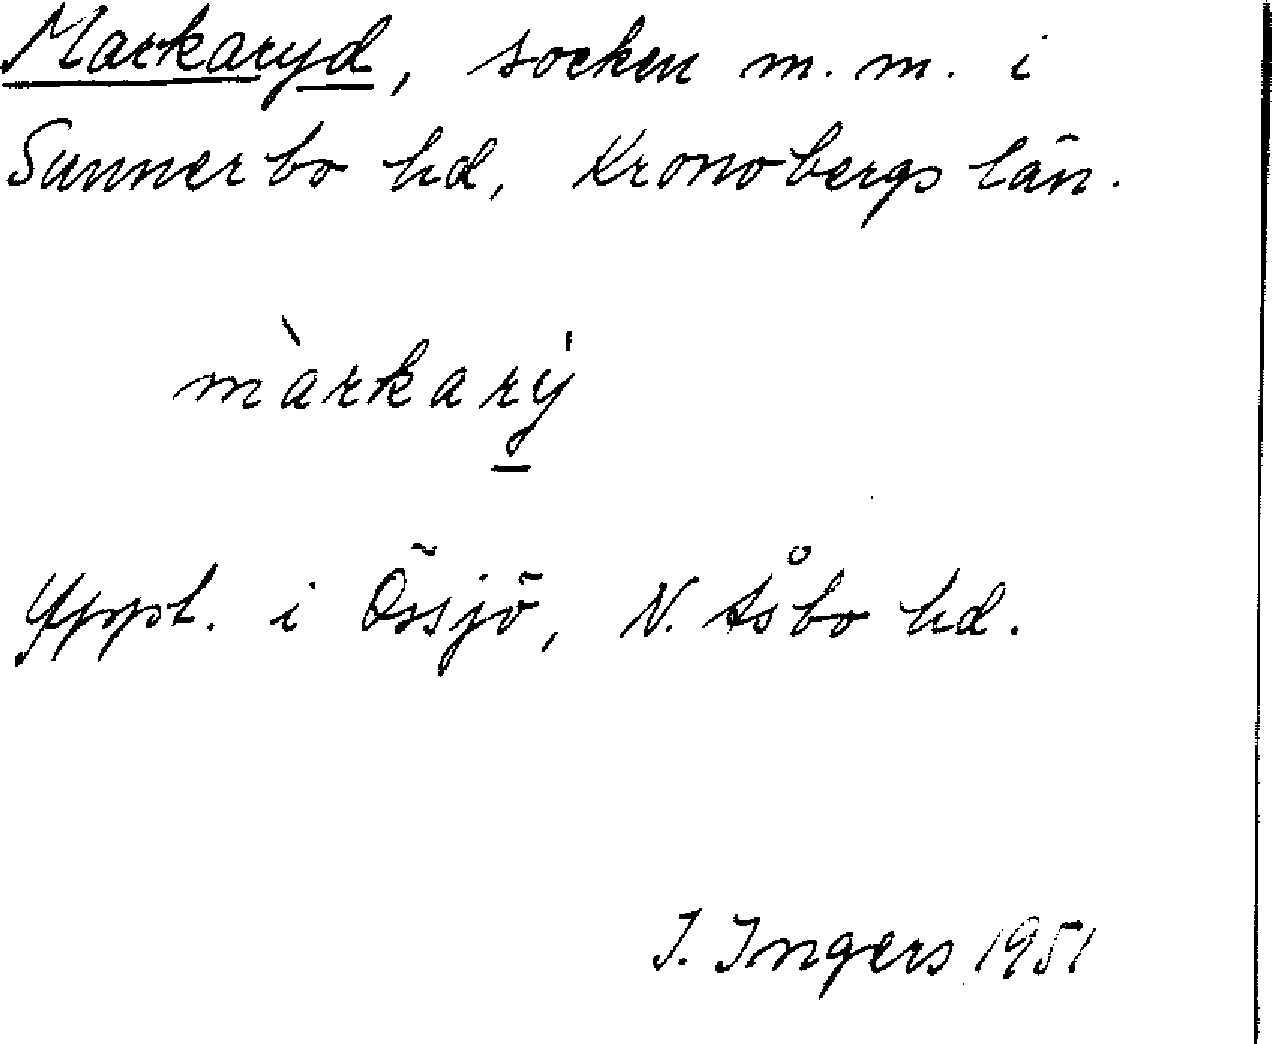 Markaryd, socken m. m. i
Sunnerbo hd, Kronobergs län.
màrkarý
Uppt. i Össjö, N. Åsbo hd.
I. Ingers 1951